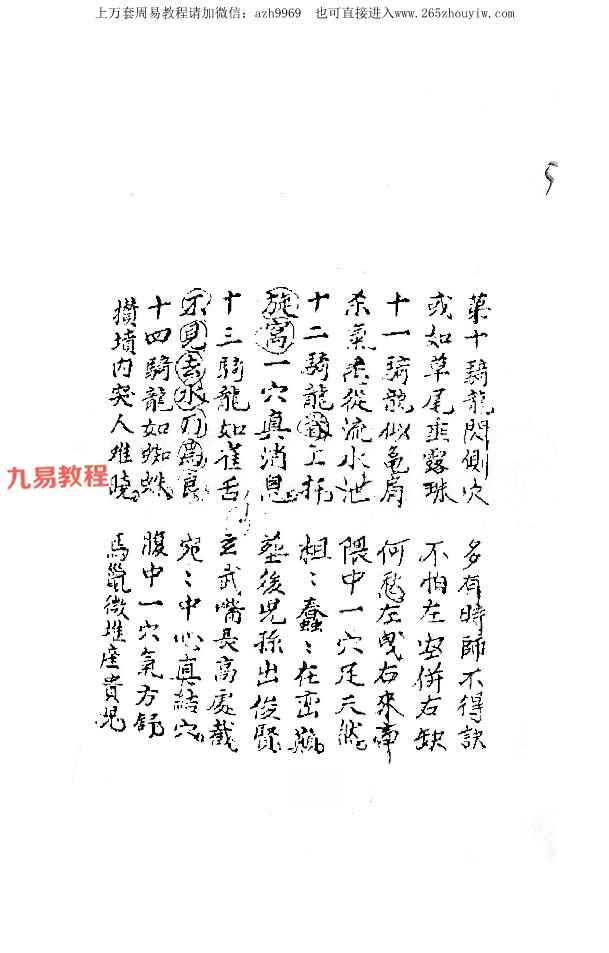 上万套周易教程请加微信：azh9969 也可直接进入www.265zhouyiw.com
5
第十騎龍閃側穴 多有時師不得訣
或如草尾垂露珠 不怕左空併右缺
十一騎龍似龜肩 何愁左曳右來牽
杀氣從流水池 隈中一穴足天然
十二騎龍上托 粗〻蠢〻在巒巔
旋窩一穴真消息 塟後児孫出俊賢
十三騎龍如雀舌 玄武嘴長高處截
不見去水乃為良 宛〻中心真結穴
十四騎龍如蜘蛛 腹中一穴氣方舒
攅墳內突人难曉 馬鬣微堆産貴児
九易教程